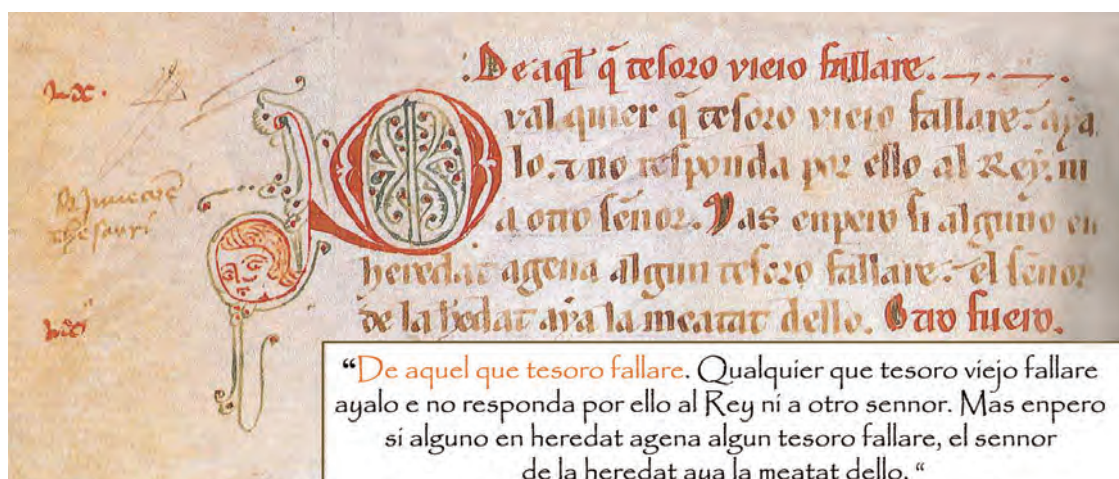 De aql̃ q̃ tesoro vieio fallare.
Qval quier q̃ tesoro vieio fallare: aya
lo. ⁊ no responda por ello al Rey. ni
a otro señor. Mas enpero si alguno en
heredat agena algun tesoro fallare: el señor
de la h̃edat aya la meatat dello. Otro fuero.
thesauri
“De aquel que tesoro fallare. Qualquier que tesoro viejo fallare
ayalo e no responda por ello al Rey ni a otro sennor. Mas enpero
si alguno en heredat agena algun tesoro fallare, el sennor
de la heredat aya la meatat dello. “